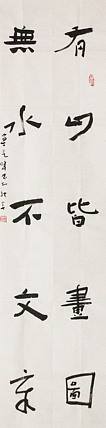 有山皆畫圖
無水不文章